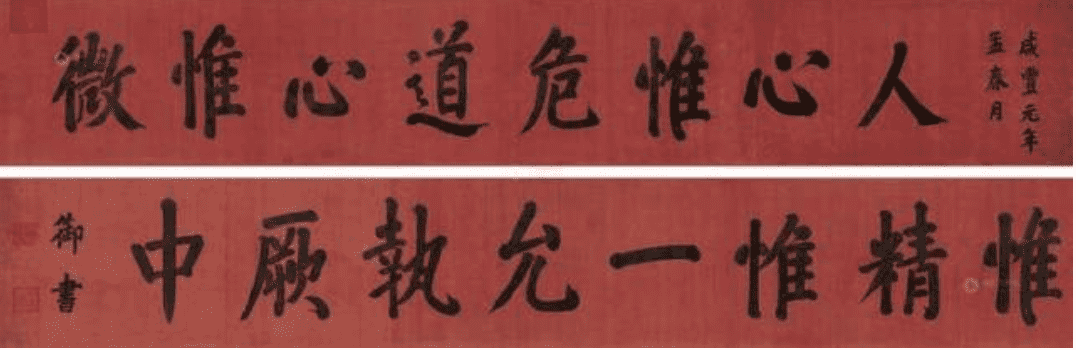 咸豐元年
孟春月
人心惟危道心惟微
惟精惟一允執厥中
御書